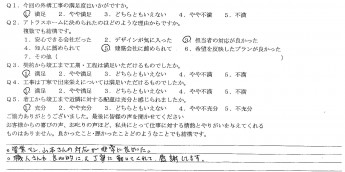 Q1．今回の外構工事の満足度はいかがですか。
①．満足　2．やや満足　3．どちらともいえない　4．やや不満　5．不満
Q2．アトラスホームに決められたのはどのような理由からですか。
複数でも結構です。
1．安心できる会社だった　2．デザインが気に入った　③．担当者の対応が良かった
4．知人に薦められて　⑤．建築会社に薦められて　6．希望を反映したプランが良かった
7．その他（　　　）
Q3．契約から竣工まで工期・工程は満足いただけるものでしたか。
①．満足　2．やや満足　3．どちらともいえない　4．やや不満　5．不満
Q4．工事は丁寧で出来栄えについては満足いただけるものでしたか。
①．満足　2．やや満足　3．どちらともいえない　4．やや不満　5．不満
Q5．着工から竣工まで近隣に対する配慮は充分と感じられましたか。
①．充分　2．やや充分　3．どちらともいえない　4．やや不充分　5．不充分
ご協力ありがとうございました。最後に皆様の声を聞かせてください
お客様からの喜びの声、お叱りの声ほど、私共にとって仕事に対する情熱とやりがいをあたえてくれる
ものはありません。良かったこと・悪かったことどのようなことでも結構です。
○営業マン、山本さんの対応が非常に良かった。
○職人さんも良心的に、丁寧に動いてくれて感謝します。